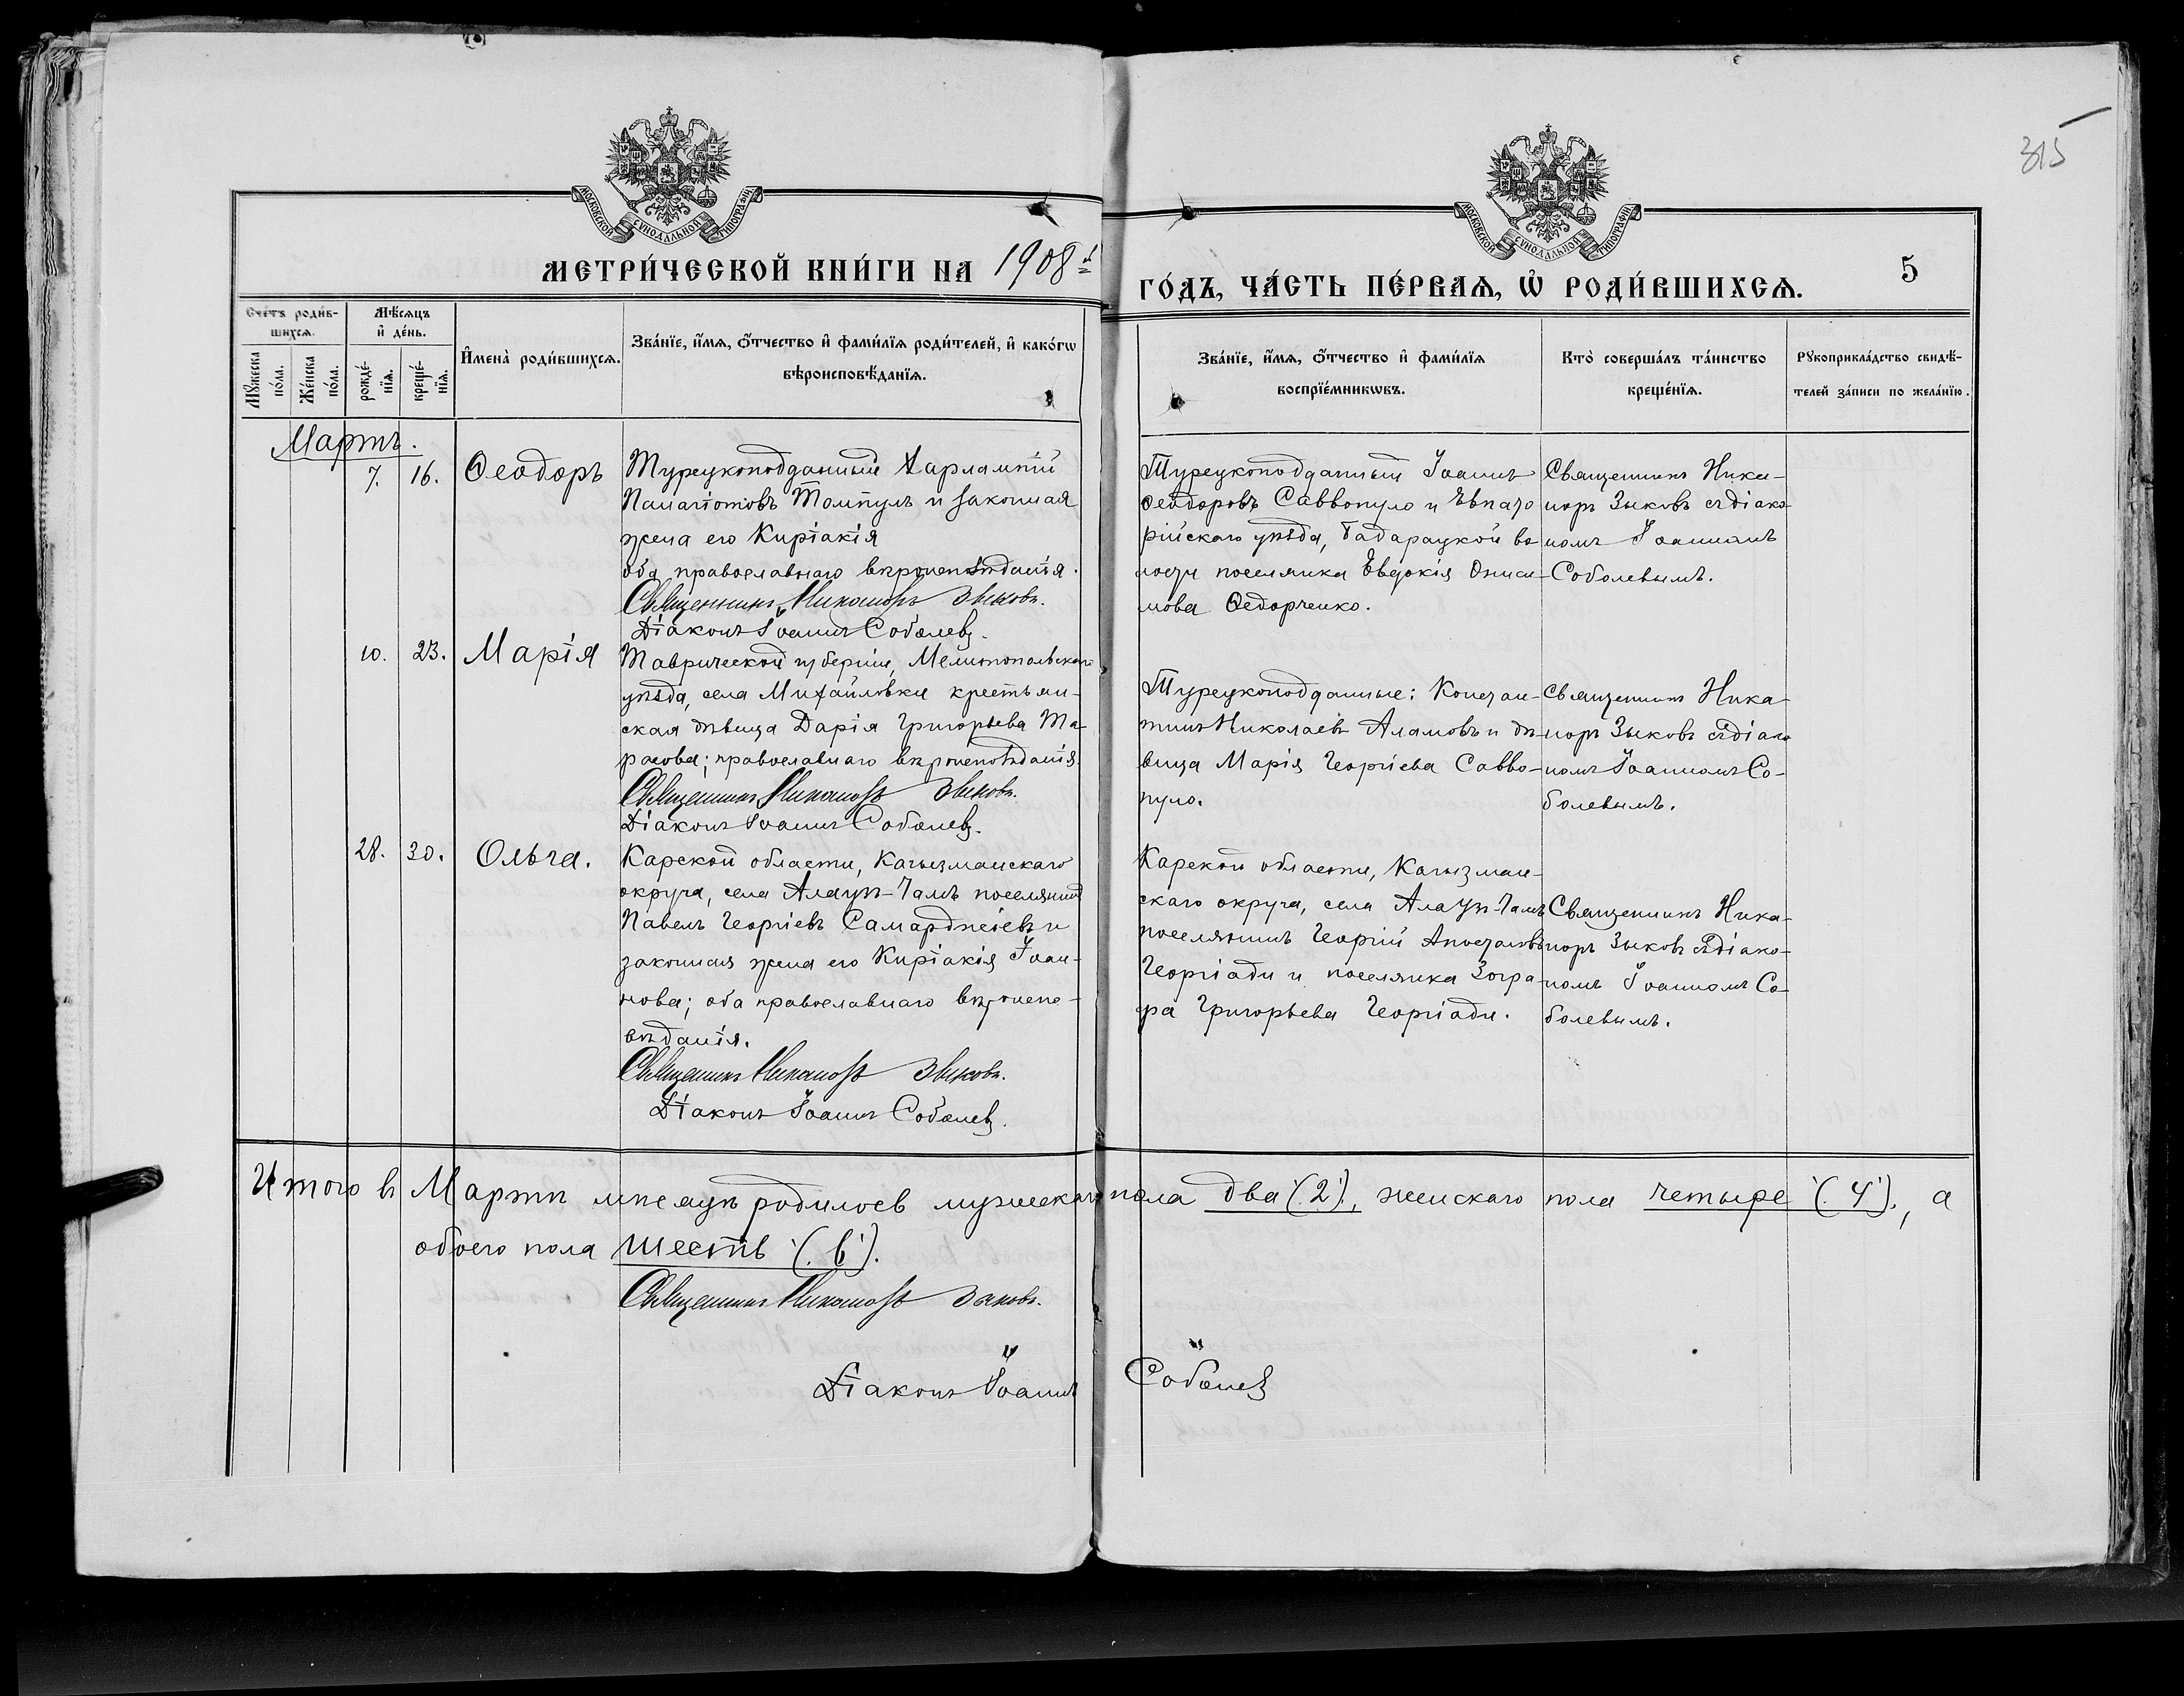 315
МОСКОВСКОЙ СѴНОДАЛЬНОЙ ТИПОГРАФІИ
МОСКОВСКОЙ СѴНОДАЛЬНОЙ ТИПОГРАФІИ
МЕТРИ́ЧЕСКОЙ КНИ́ГИ НА 1908й
ГО́ДЪ, ЧА́СТЬ ПЕ́РВАѦ, Ѡ҆ РОДИ́ВШИХСѦ.
5
Сче́тъ роди́в-
шихсѧ.
Мѹ́жеска по́ла.
Же́нска по́ла.
Мѣ́сѧцъ
и҆ де́нь.
рожде́-
нїѧ.
креще́-
нїѧ.
И҆мена̀ роди́вшихсѧ.
Зва́нїе, и҆́мѧ, ѻ҆́тчество и҆ фами́лїѧ роди́телей, и҆ како́гѡ
вѣроисповѣ́данїѧ.
Зва́нїе, и҆́мѧ, ѻ҆́тчество и҆ фами́лїѧ
воспрїе́мникѡвъ.
Кто̀ соверша́лъ та́инство
креще́нїѧ.
Рꙋкоприкла́дство свидѣ́-
телей за́писи по жела́нїю.
Мартъ.
7. 16. Ѳеодоръ
Турецкоподданный Харлампій
Панаіотовъ Томпулъ и законная
жена его Киріакія
оба православнаго вѣроисповѣданія.
Священникъ Никаноръ Зыковъ.
Діаконъ Іоаннъ Соболевъ.
Турецкоподданный Іоаннъ
Ѳеодоровъ Саввопуло и Евпато
рійскаго уѣзда, во
лости поселянка Евдокія Ониси-
мова Ѳедорченко.
Священникъ Ника-
норъ Зыковъ съ діако
номъ Іоанномъ
Соболевымъ.
10. 23. Марія
Таврической губерніи, Мелитопольскаго
уѣзда, села Михайловки крестьян-
ская дѣвица Дарія Григорьева Та-
расова; православнаго вѣроисповѣданія.
Священникъ Никаноръ Зыковъ.
Діаконъ Іоаннъ Соболевъ.
Турецкоподданные: Констан-
тинъ Николаевъ Аламовъ и дѣ-
вица Марія Георгіева Савво-
пуло.
Священникъ Ника-
норъ Зыковъ съ діако
номъ Іоанномъ Со-
болевымъ.
28. 30. Ольга.
Карской области, Кагызманскаго
округа, села поселянинъ
Павелъ Георгіевъ Самарджіевъ и
законная жена его Киріакія Іоан-
нова; оба православнаго вѣроиспо-
вѣданія.
Священникъ Никаноръ Зыковъ.
Діаконъ Іоаннъ Соболевъ.
Карской области, Кагызман-
скаго округа, села
поселянинъ Георгій Апостоловъ
Георгіади и поселянка Зогра-
фа Григорьева Георгіади.
Священникъ Ника-
норъ Зыковъ съ діако-
номъ Іоанномъ Со-
болевымъ.
Итого въ Мартѣ мѣсяцѣ родилось мужескаго пола два (2), женскаго пола четыре (4), а
обоего пола шесть (6).
Священникъ Никаноръ Зыковъ.
Діаконъ Іоаннъ Соболевъ